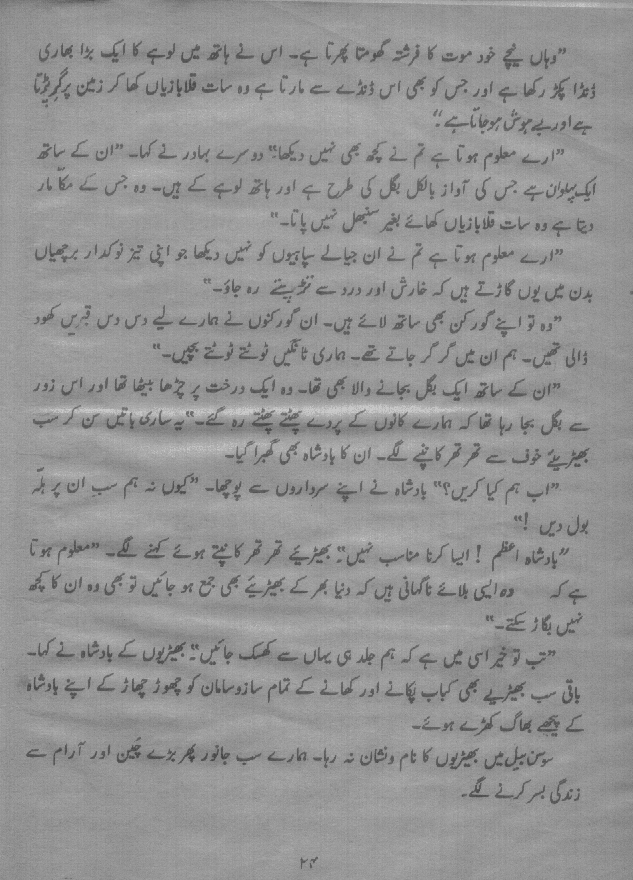 ”وہاں نیچے خود موت کا فرشتہ گھومتا پھرتا ہے۔ اس نے ہاتھ میں لوہے کا ایک بڑا بھاری
ڈنڈا پکڑ رکھا ہے اور جس کو بھی اس ڈنڈے سے مارتا ہے وہ سات قلابازیاں کھا کر زمین پر گر پڑتا
ہے اور بے ہوش ہو جاتا ہے“
”ارے معلوم ہوتا ہے تم نے کچھ بھی نہیں دیکھا“ دوسرے بہادر نے کہا۔ ”ان کے ساتھ
ایک پہلوان ہے جس کی آواز بالکل بگل کی طرح ہے اور ہاتھ لوہے کے ہیں۔ وہ جس کے مکّا مار
دیتا ہے وہ سات قلابازیاں کھائے بغیر سنبھل نہیں پاتا۔“
”ارے معلوم ہوتا ہے تم نے ان جیالے سپاہیوں کو نہیں دیکھا جو اپنی تیز نوکدار برچھیاں
بدن میں یوں گاڑتے ہیں کہ خارش اور درد سے تڑپتے رہ جاؤ۔“
”وہ تو اپنے گورکن بھی ساتھ لائے ہیں۔ ان گورکنوں نے ہمارے لیے دس دس قبریں کھود
ڈالی تھیں۔ ہم ان میں گر گر جاتے تھے۔ ہماری ٹانگیں ٹوٹتے ٹوٹتے بچیں۔“
”ان کے ساتھ ایک بگل بجانے والا بھی تھا۔ وہ ایک درخت پر چڑھا بیٹھا تھا اور اس زور
سے بگل بجا رہا تھا کہ ہمارے کانوں کے پردے پھٹتے پھٹتے رہ گئے۔“ یہ ساری باتیں سن کر سب
بھیڑیئے خوف سے تھر تھر کانپنے لگے۔ ان کا بادشاہ بھی گھبرا گیا۔
”اب ہم کیا کریں؟“ بادشاہ نے اپنے سرداروں سے پوچھا۔ ”کیوں نہ ہم سب ان پر ہلّہ
بول دیں !“
”بادشاہ اعظم ! ایسا کرنا مناسب نہیں“ بھیڑیئے تھر تھر کانپتے ہوئے کہنے لگے۔ ”معلوم ہوتا
ہے کہ وہ ایسی بلائے ناگہانی ہیں کہ دنیا بھر کے بھیڑیئے بھی جمع ہو جائیں تو بھی وہ ان کا کچھ
نہیں بگاڑ سکتے۔“
”تب تو خیر اسی میں ہے کہ ہم جلد ہی یہاں سے کھسک جائیں“ بھیڑیوں کے بادشاہ نے کہا۔
باقی سب بھیڑیے بھی کباب پکانے اور کھانے کے تمام سازوسامان کو چھوڑ چھاڑ کے اپنے بادشاہ
کے پیچھے بھاگ کھڑے ہوئے۔
سوسن بیل میں بھیڑیوں کا نام ونشان نہ رہا۔ ہمارے سب جانور پھر بڑے چین اور آرام سے
زندگی بسر کرنے لگے۔
۲۴